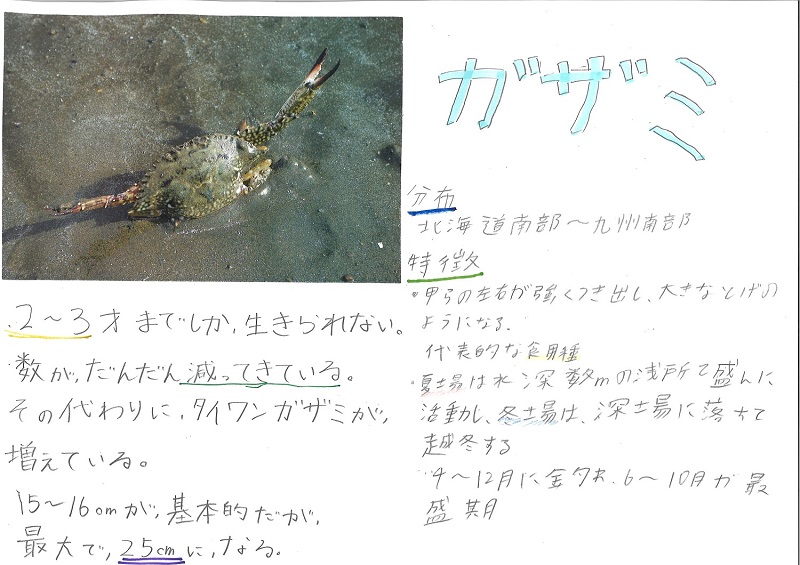 ガザミ
分布
北海道南部～九州南部
特徴
・甲らの左右が強くつき出し、大きなとげの
ようになる。
代表的な食用種
・夏場は水深数mの浅所で盛んに
活動し、冬場は、深場に落ちて
越冬する
4～12月に 6～10月が最
盛期
・2～3才までしか、生きられない。
数が、だんだん減ってきている。
その代わりに、タイワンガザミが、
増えている。
15～16cmが、基本的だが、
最大で、25cmに、なる。